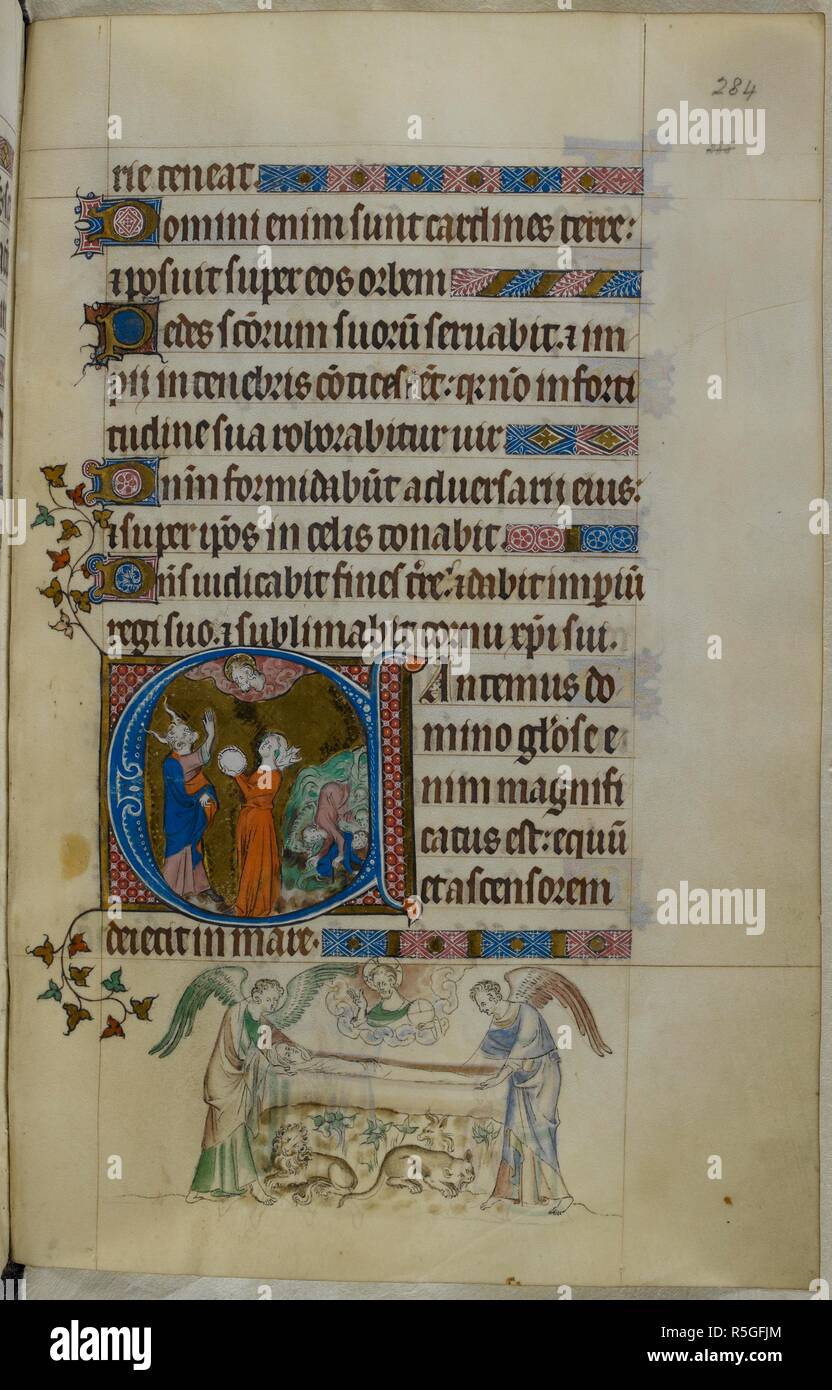 284
rie teneat.
Domini enim sunt cardines terre:
⁊ posuit super eos orbem
Pedes scõrum suorũ seruabit. ⁊ im
pii in tenebris cõticescẽt: qr nõ in forti
tudine sua roborabitur uir
Dñm formidabũt aduersarii eius:
⁊ super ip̃os in celis tonabit.
Dñs iudicabit fines tr̃e: ⁊ dabit imp̃iũ
regi suo. ⁊ sublimabit cornu xp̃i sui.
CAntemus do
mino gl̃ose e
nim magnifi
catus est: equũ
et ascensorem
deiecit in mare.
alamy
Image ID: R5GFJM
www.alamy.com